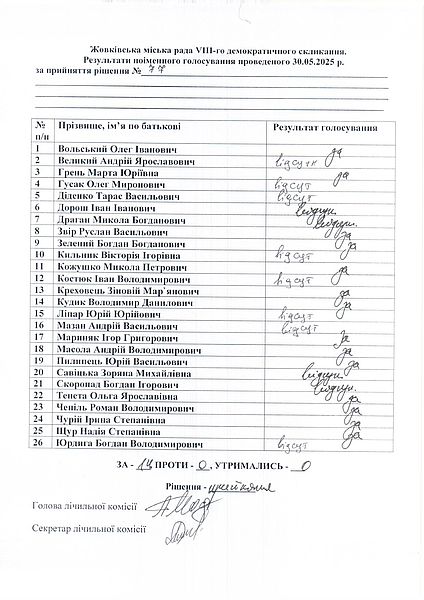 Жовківська міська рада VIII-го демократичного скликання.
Результати поіменного голосування проведеного 30.05.2025 р.
за прийняття рішення № 77
№ п/п Прізвище, ім’я по батькові Результат голосування
1 Вольський Олег Іванович да
2 Великий Андрій Ярославович відсутн
3 Грень Марта Юріївна да
4 Гусак Олег Миронович відсут
5 Діденко Тарас Васильович відсут
6 Дорош Іван Іванович
7 Драган Микола Богданович
8 Звір Руслан Васильович да
9 Зелений Богдан Богданович да
10 Кильник Вікторія Ігорівна відсут
11 Кожушко Микола Петрович да
12 Костюк Іван Володимирович відсут
13 Креховець Зіновій Мар`янович да
14 Кудик Володимир Данилович да
15 Ліпар Юрій Юрійович відсут
16 Мазан Андрій Васильович відсут
17 Мариняк Ігор Григорович За
18 Масола Андрій Володимирович да
19 Пилипець Юрій Васильович да
20 Савінька Зоряна Михайлівна
21 Скоропад Богдан Ігорович
22 Тепета Ольга Ярославівна да
23 Чепіль Роман Володимирович да
24 Чурій Ірина Степанівна да
25 Щур Надія Степанівна да
26 Юрдига Богдан Володимирович відсут
ЗА - 14 ПРОТИ - 0, УТРИМАЛИСЬ - 0
Рішення -
Голова лічильної комісії
Секретар лічильної комісії